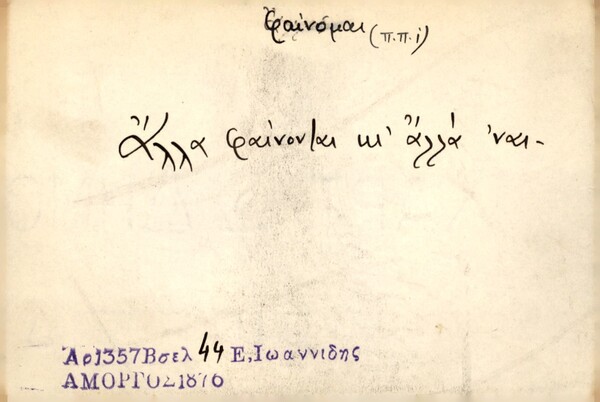 Φαίνομαι (π.π.ι)
Ἄλλα φαίνονται κι' ἄλλα 'ναι-
Ἀρ1357Βσελ 44 Ε,Ιωαννιδης
ΑΜΟΡΓΟΣ1876